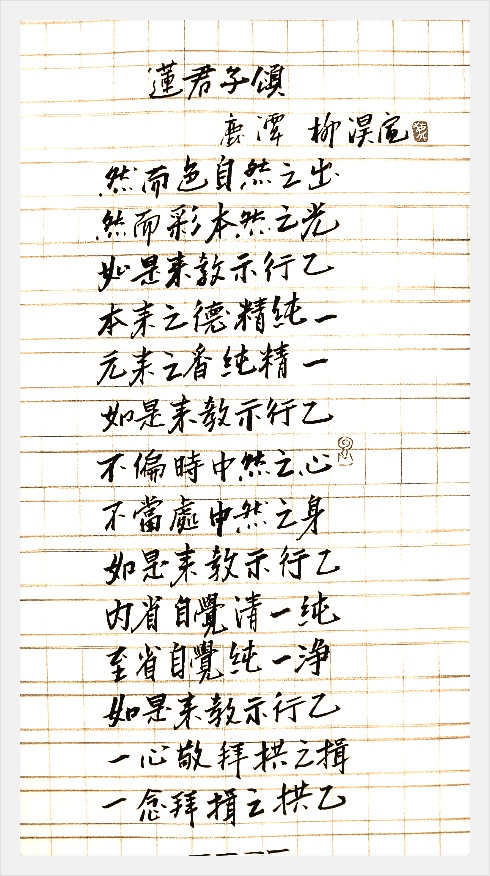 蓮君子頌
鹿潭 柳淏宣
然而色自然之出
然而彩本然之光
如是来教示行乙
本来之德精純一
元来之香純精一
如是来教示行乙
不偏時中然之心
不當處中然之身
如是来教示行乙
内省自覺清一純
至省自覺純一浄
如是来教示行乙
一心敬拜拱之揖
一念拜揖之拱乙